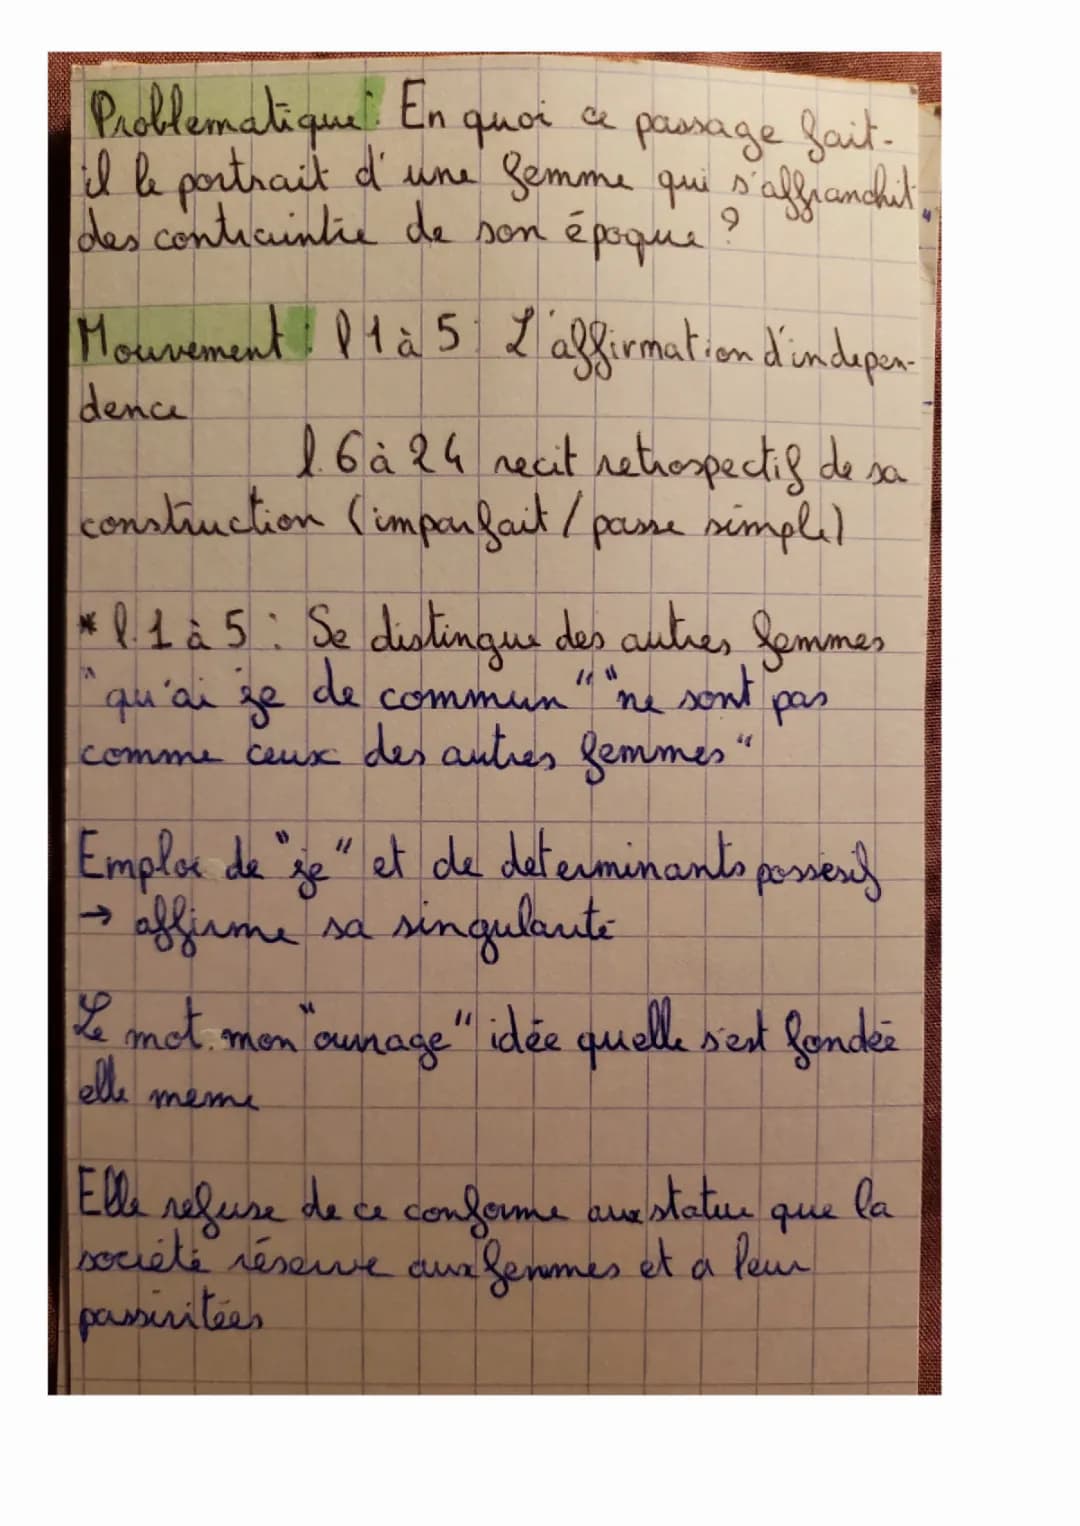 Problematique : En quoi ce passage fait-
il le portrait d'une femme qui s'affranchit
des contraintie de son époque ?
Mouvement : l 1 à 5 : L'affirmation d'indepen-
dence
l. 6 à 24 recit retrospectif de sa
construction (imparfait / passe simple)
* l. 1 à 5 : Se distingue des autres femmes
"qu'ai je de commun" "ne sont pas
comme ceux des autres femmes"
Emploi de "je" et de determinants possesif
→ affirme sa singularité
Le mot. mon "ouvrage" idée quelle s'est fondée
elle meme
Elle refuse de ce conforme aux statue que la
société réserve aux femmes et a leur
passivitées